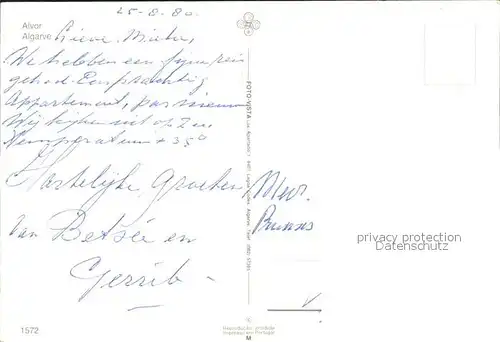 Alvor
Algarve
25-8-80
Lieve
We hebben een fijne reis
gehad. Een prachtig
Appartement, pas nieuw
Wij kijken uit op Zee
Temperatuur + 35°
Hartelijke Groeten
van Betsie en
Gerrit -
1572
FOTO-VISTA
Mevr.
privacy protection
Datenschutz
Reprodução proibida
Impresso em Portugal
M